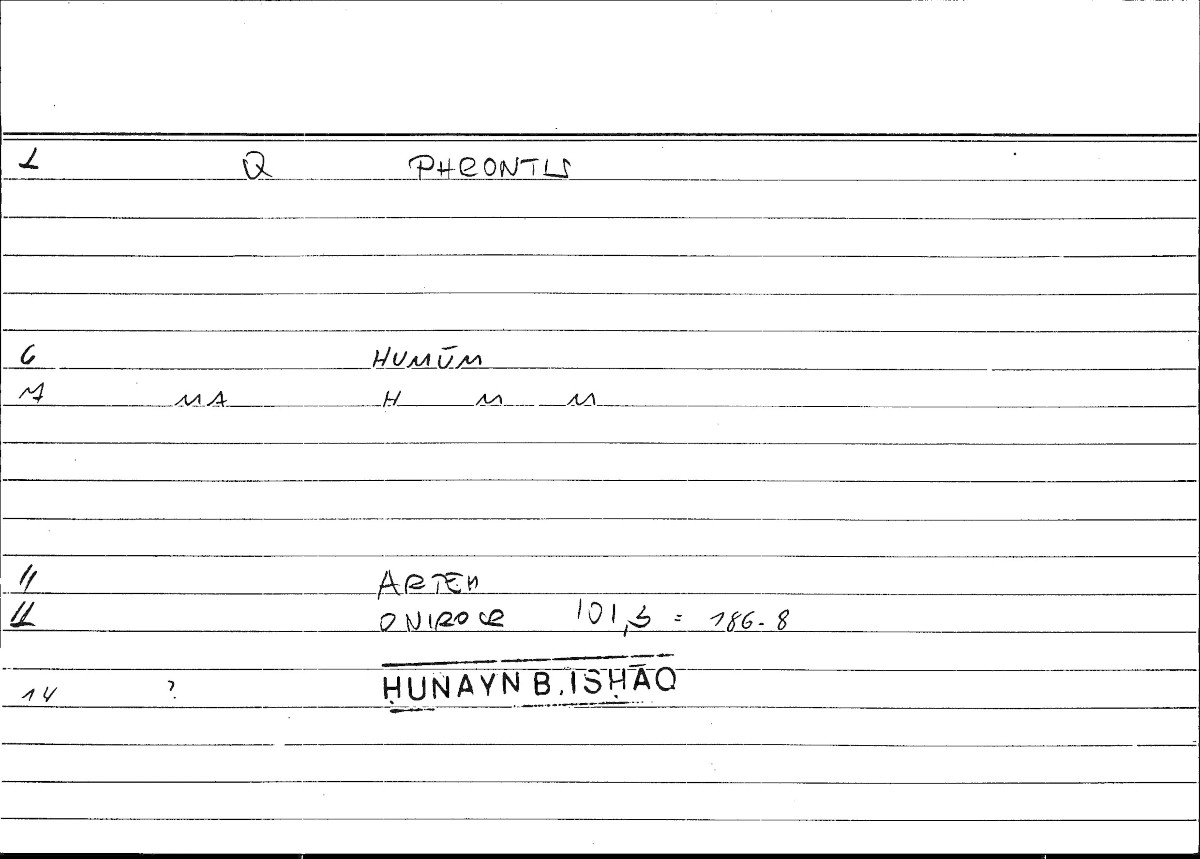 1 Q PHRONTIS
6 HUMŪM
7 MA H M M
11 ARTEM
12 ONIROCR 101,5 = 186-8
14 ? ḤUNAYN B. ISḤĀQ